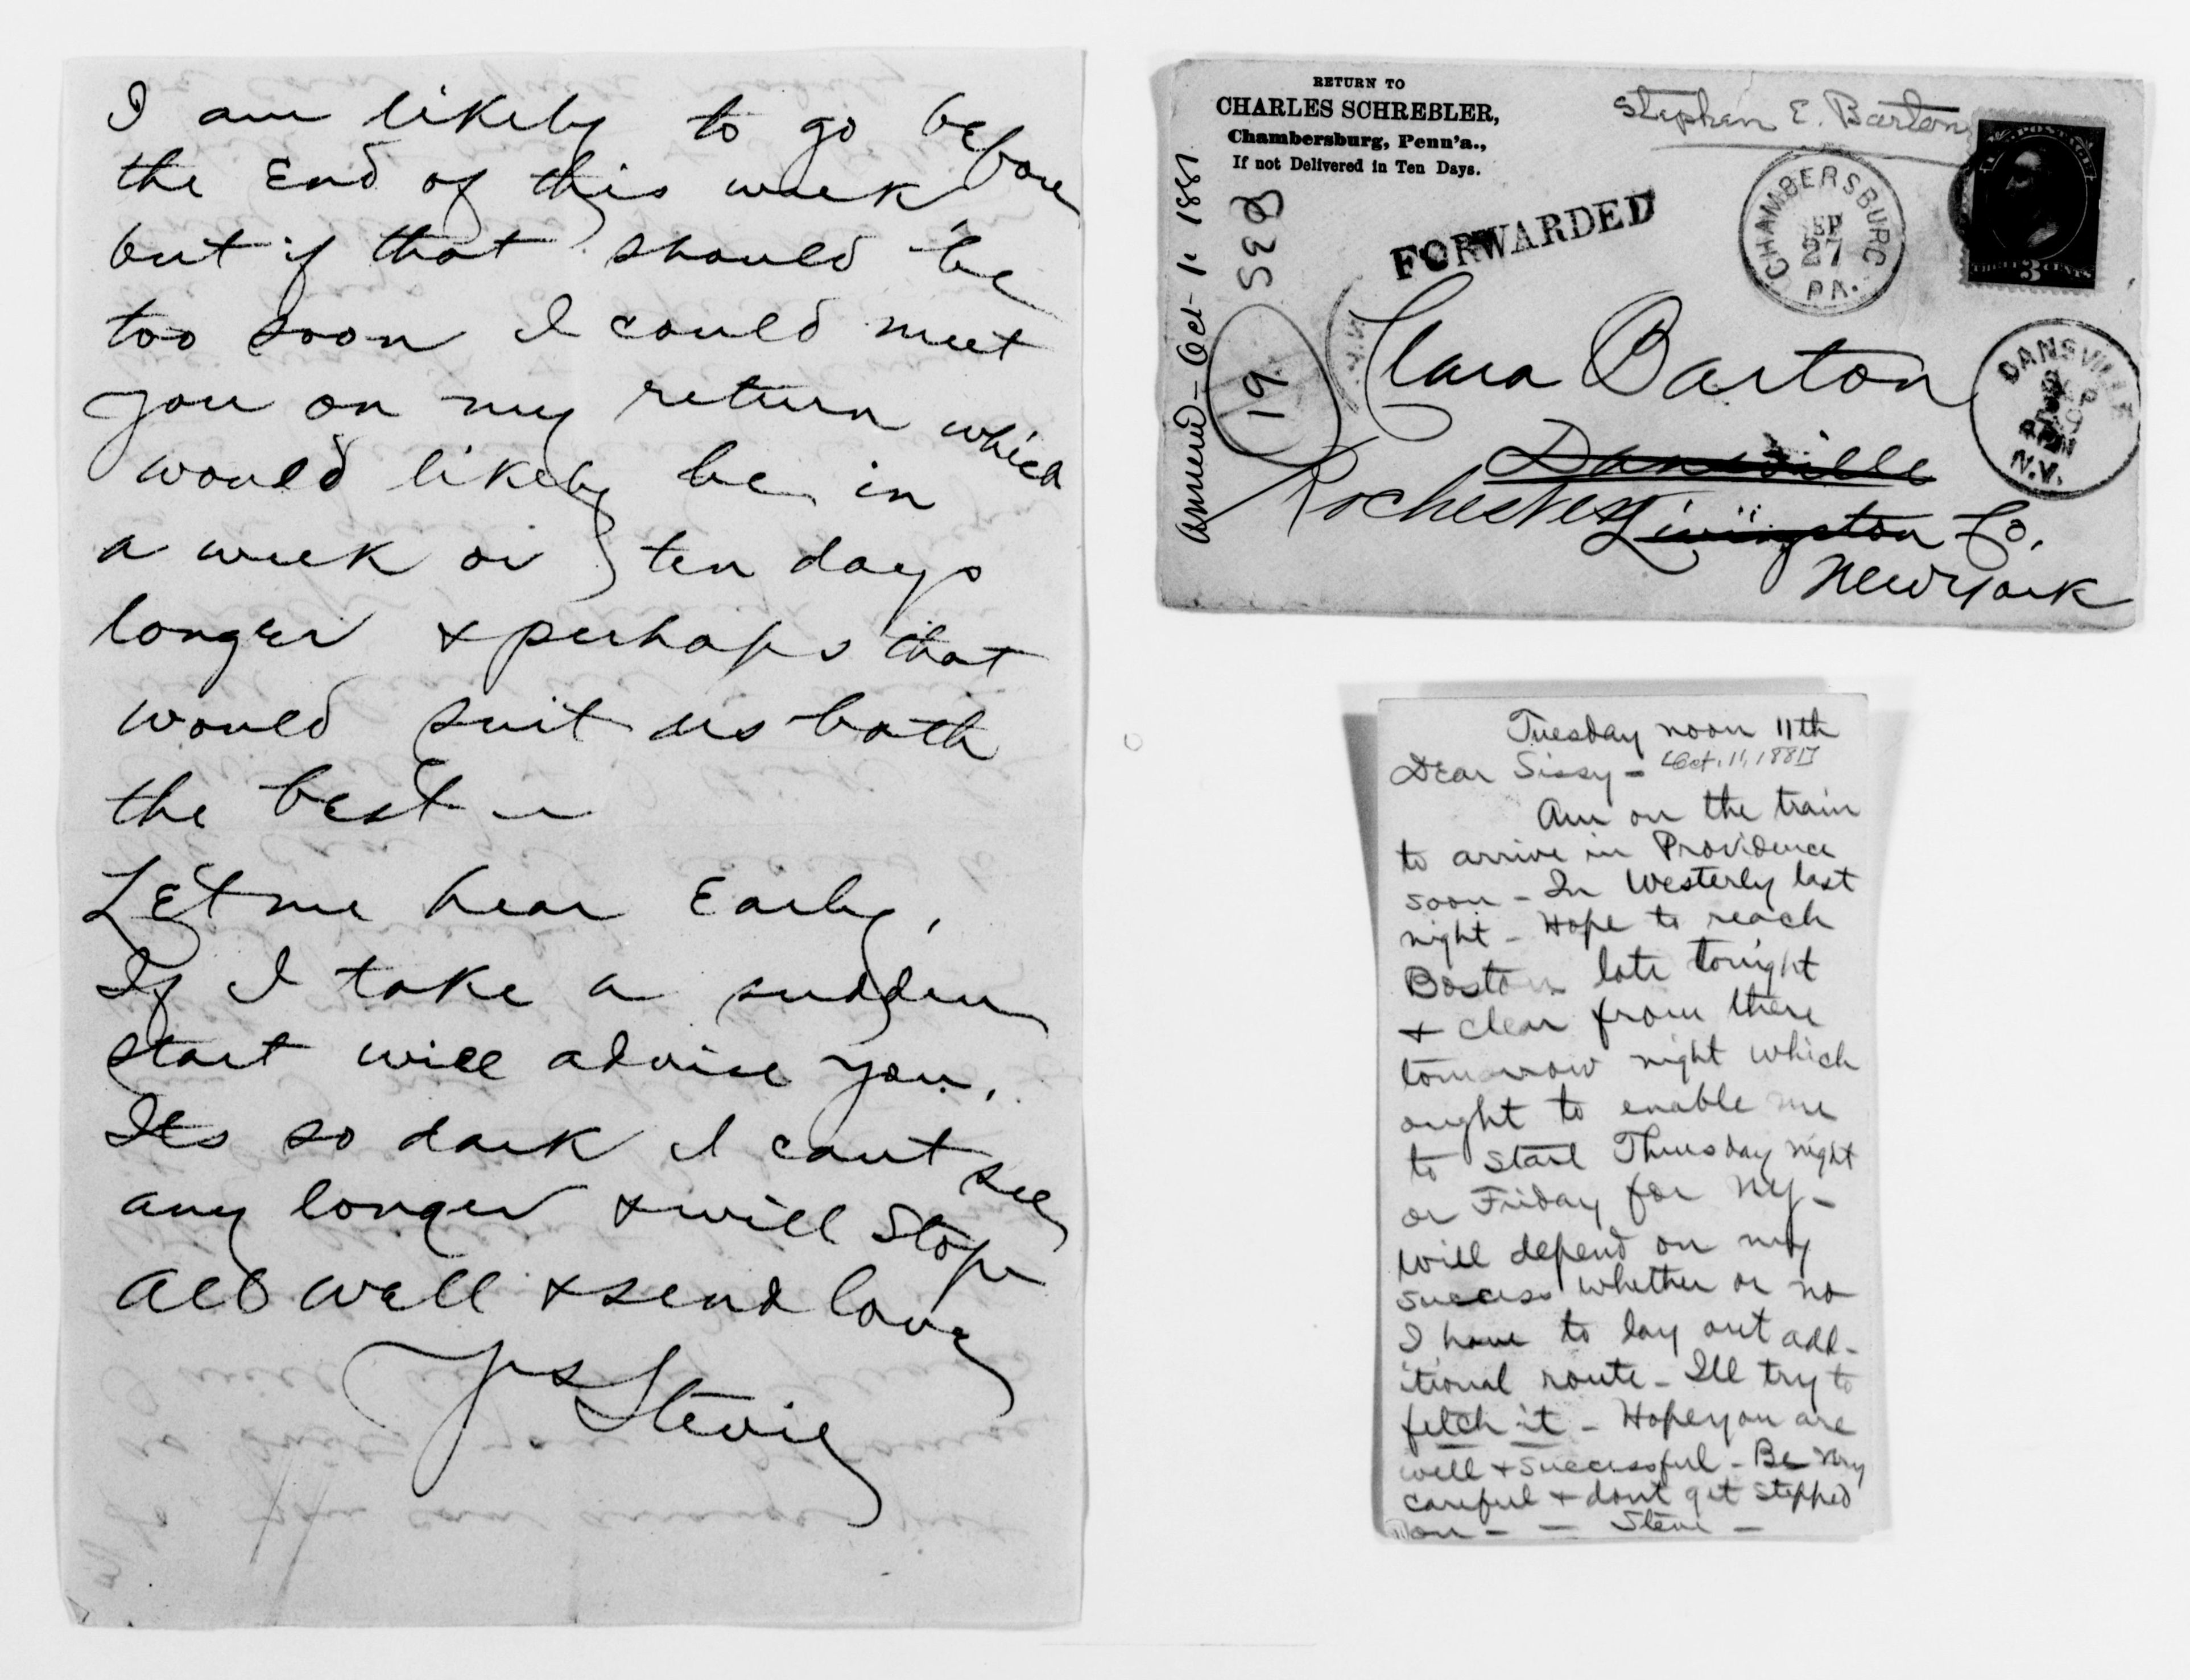 I am likely to go before
the End of this week
but if that should be
too soon I could meet
you on my return which
would likely be in
a week or ten days
longer & perhaps that
would suit us both
the best –
Let me hear Early,
If I take a sudden
start will advise you,
Its so dark I cant see
any longer & will Stop
All well & send love
Yrs
Stevie
RETURN TO
CHARLES SCHREBLER,
Chambersburg, Penn'a.,
If not Delivered in Ten Days.
Stephen E. Barton
U.S. POSTAGE
THREE 3 CENTS
CHAMBERSBURG
SEP
27
PA.
FORWARDED
Oct 1. 1881
SEB
19
Clara Barton
DANSVILLE
SEP
N.Y.
Dansville
Rochester Livingston Co.
New York
Tuesday noon 11th
Dear Sissy – [Oct. 11, 1881]
Am on the train
to arrive in Providence
soon – In Westerly last
night – Hope to reach
Boston late tonight
& clear from there
tomorrow night which
ought to enable me
to start Thursday night
or Friday for NY –
Will depend on my
success whether or no
I have to lay out add-
itional route – Ill try to
fetch it – Hope you are
well & successful – Be very
careful & dont get stepped
on – – Steve –